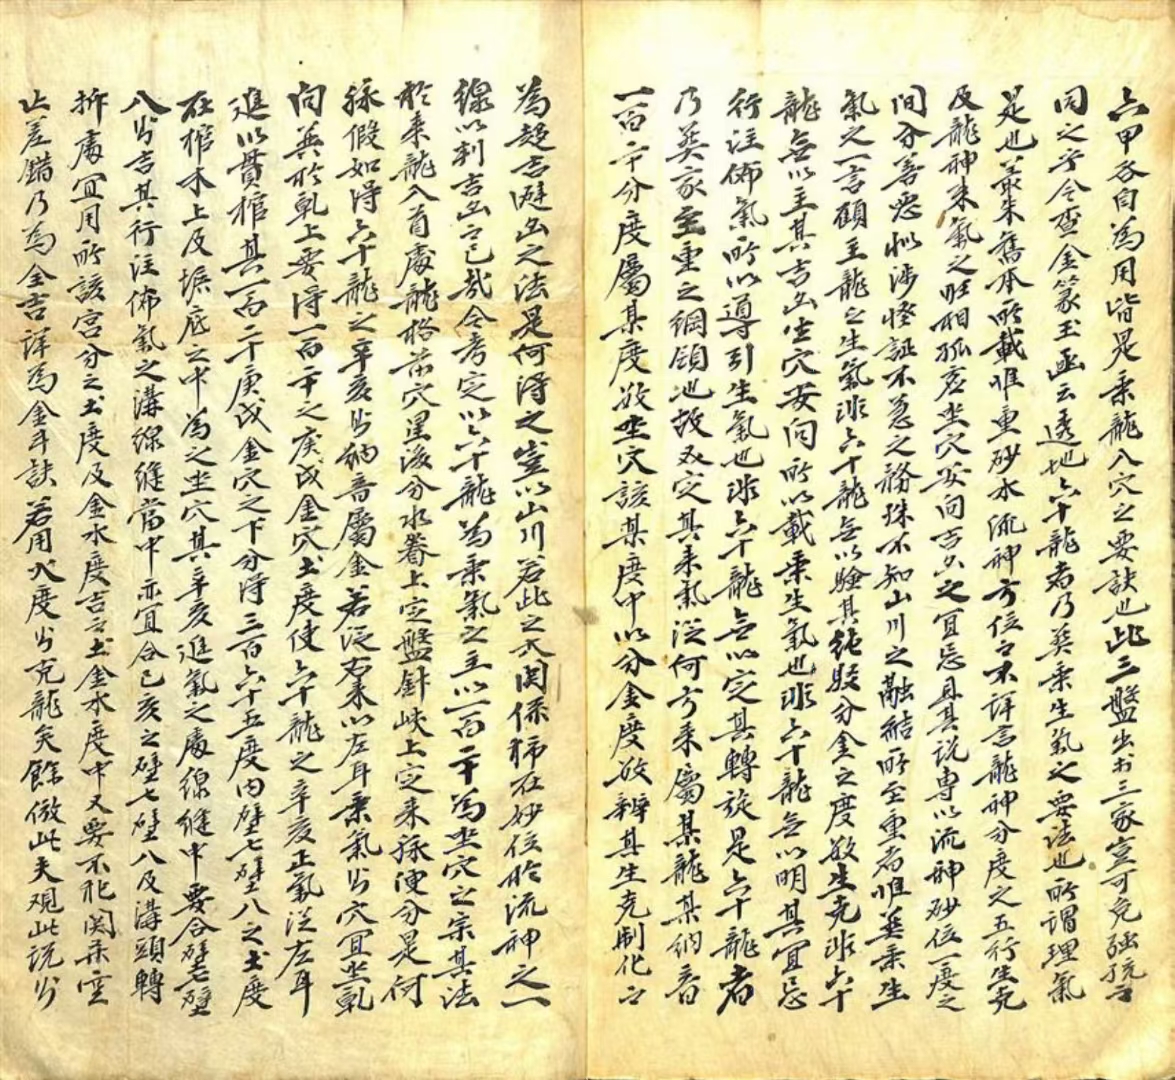 六甲各自為用皆是乘龍入穴之要訣也此三盤出於三家豈可免強
同之乎今查金篆玉函云透地六十龍者乃葬乘生氣之要法也所謂理氣
是也蓋朱舊本所載惟重砂水流神方位之不詳言龍神分度之五行生克
及龍神來氣之旺相孤虛坐穴安向吉凶之宜忌且其說專以流神砂位一度之
間分善惡似涉怪誕不急之務殊不知山川之融結所至重者惟葬乘生
氣之一言顧主龍之生氣非六十龍無以驗其純駁分金之度數生克非六十
龍無以主其吉凶坐穴安向所以載乘生氣也非六十龍無以明其宜忌
行注佈氣所以導引生氣也非六十龍無以定其轉旋是六十龍者
乃葬家至重之綱領也故必定其來氣從何方來屬某龍某納音
一百二十分度屬某度故坐穴該某度中以分金度故辨其生克制化之
為趨吉避凶之法是何得之豈以山川若此之大関係柄在妙位於流神之一
線以判吉凶已哉今考定以六十龍為乘氣之主以一百二十為坐穴之宗其法
於來龍入首處龍格葬穴星後分水脊上定盤針峽上定來脉便分是何
脉假如得六十龍之辛亥納音屬金若從右來以左耳乘氣穴宜坐乹
向巽於乹上要得一百二十之庚戌金穴土度使六十龍之辛亥正氣從左耳
進以貫棺其一百二十庚戌金穴之下分得三百六十五度內壁七壁八之土度
在棺木上及壙底之中為之坐穴其辛亥進氣之處線縫中要合壁七壁
八為吉其行注佈氣之溝線縫當中亦宜合己亥之壁七壁八及溝頭轉
拆處宜用所該宮分之土度及金水度吉土金水度中又要不犯関杀空
亡差錯乃為全吉詳為金斗訣若用火度為克龍矣餘倣此夫观此說